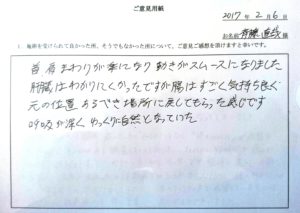 ご意見用紙
2017年2月6日
お名前 斉藤 様
1. 施術を受けられて良かった所、そうでもなかった所について、ご意見ご感想を頂けますと幸いです。
首肩まわりが楽になり動きがスムースになりました
肝臓はわかりにくかったですが腸はすごく気持ち良く
元の位置 あるべき場所に戻してもらった感じです
呼吸が深く ゆっくりに自然となっていた